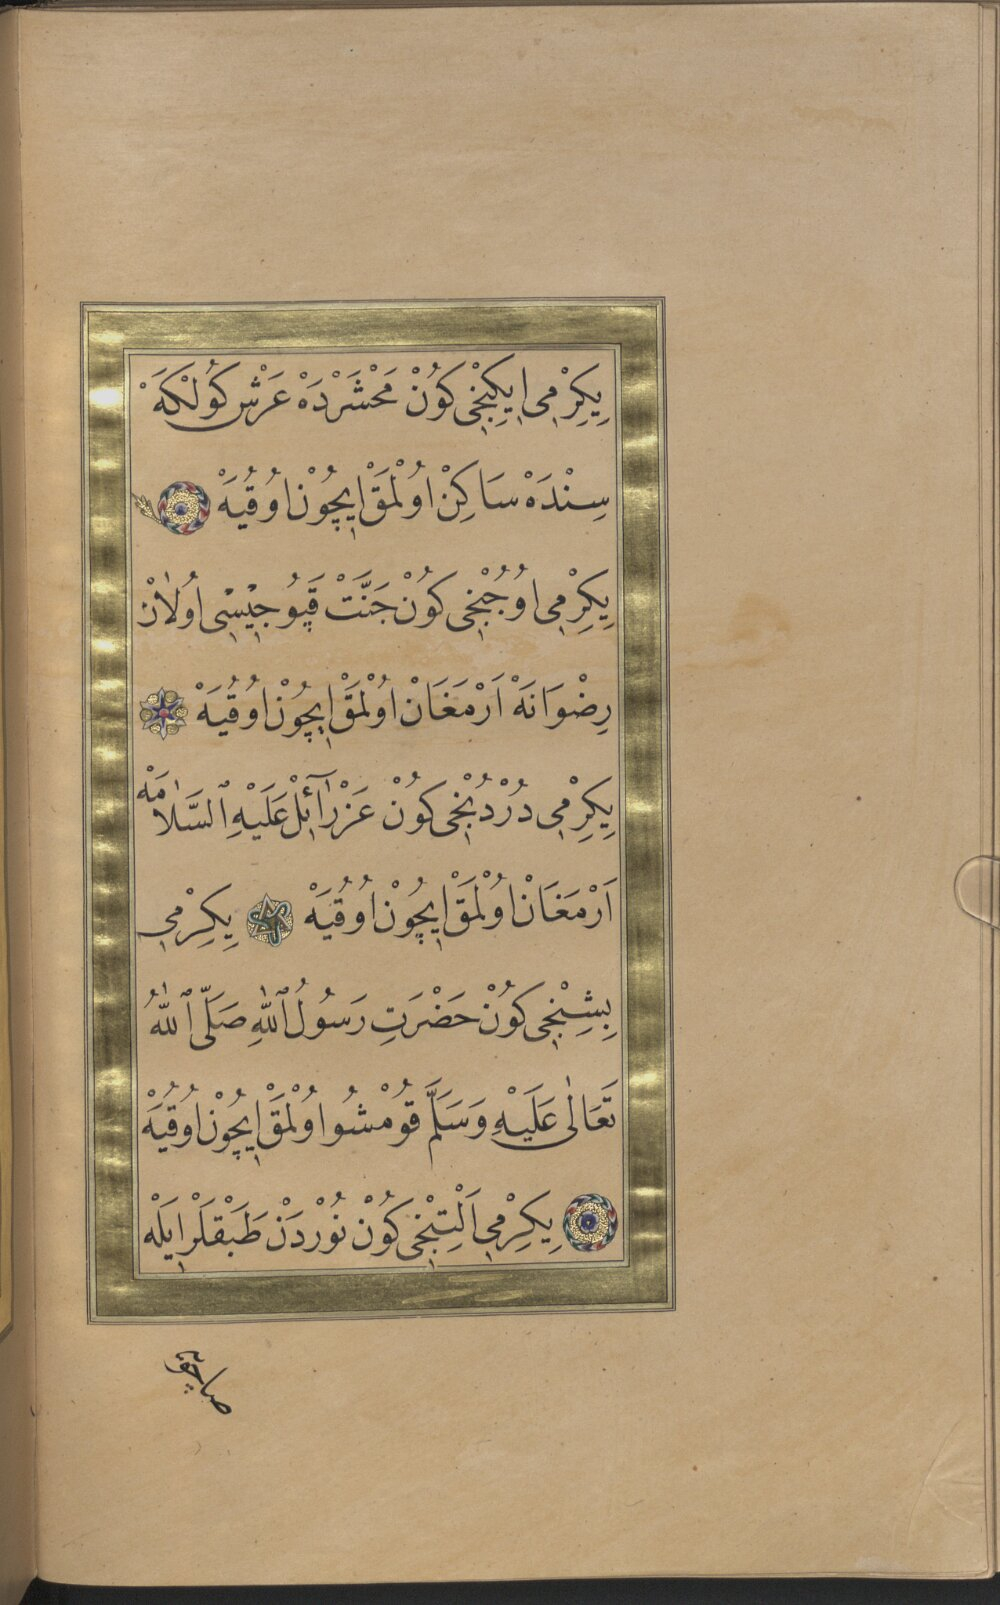 يِكِرْمِى اِيكِنْجِى كُونْ مَحْشَرْدَهْ عَرْش كُولْكَهَ
سِنْدَهْ سَاكِنْ اُولْمَقْ اِيچُونْ اُوقُيَهْ
يِكِرْمِى اُوجُنْجِى كُونْ جَنَّتْ قَپُوجِيسِى اُولَانْ
رِضْوَانَهْ اَرْمَغَانْ اُولْمَقْ اِيچُونْ اُوقُيَهْ
يِكِرْمِى دُرْدُنْجِى كُونْ عَزْرَآئِلْ عَلَيْهِ ٱلسَّلَامَهْ
اَرْمَغَانْ اُولْمَقْ اِيچُونْ اُوقُيَهْ يِكِرْمِى
بِشِنْجِى كُونْ حَضْرَتِ رَسُولُ ٱللّٰهِ صَلَّى ٱللّٰهُ
تَعَالٰى عَلَيْهِ وَسَلَّمْ قُومْشُو اُولْمَقْ اِيچُونْ اُوقُيَهْ
يِكِرْمِى اَلْتِنْجِى كُونْ نُورْدَنْ طَبَقْلَرْ اِيلَه